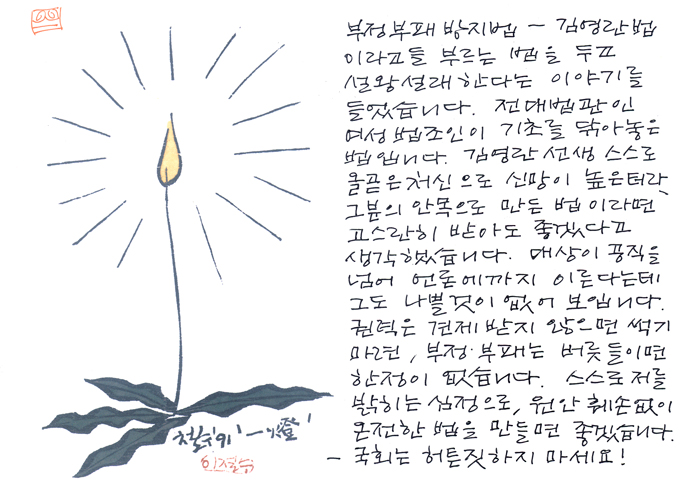 부정부패 방지법 - 김영란법
이라고들 부르는 법을 두고
설왕설래한다는 이야기를
들었습니다. 전 대법관인
여성 법조인이 기초를 닦아놓은
법입니다. 김영란 선생 스스로
올곧은 처신으로 신망이 높은터라,
그분의 안목으로 만든 법이라면
고스란히 받아도 좋겠다고
생각했습니다. 대상이 공직을
넘어 언론에까지 이른다는데
그도 나쁠 것이 없어 보입니다.
권력은 견제 받지 않으면 썩기
마련, 부정·부패는 버릇들이면
한정이 없습니다. 스스로 저를
밝히는 심정으로, 원안 훼손없이
온전한 법을 만들면 좋겠습니다.
- 국회는 허튼짓하지 마세요!
철수 91 '一燈'
이철수